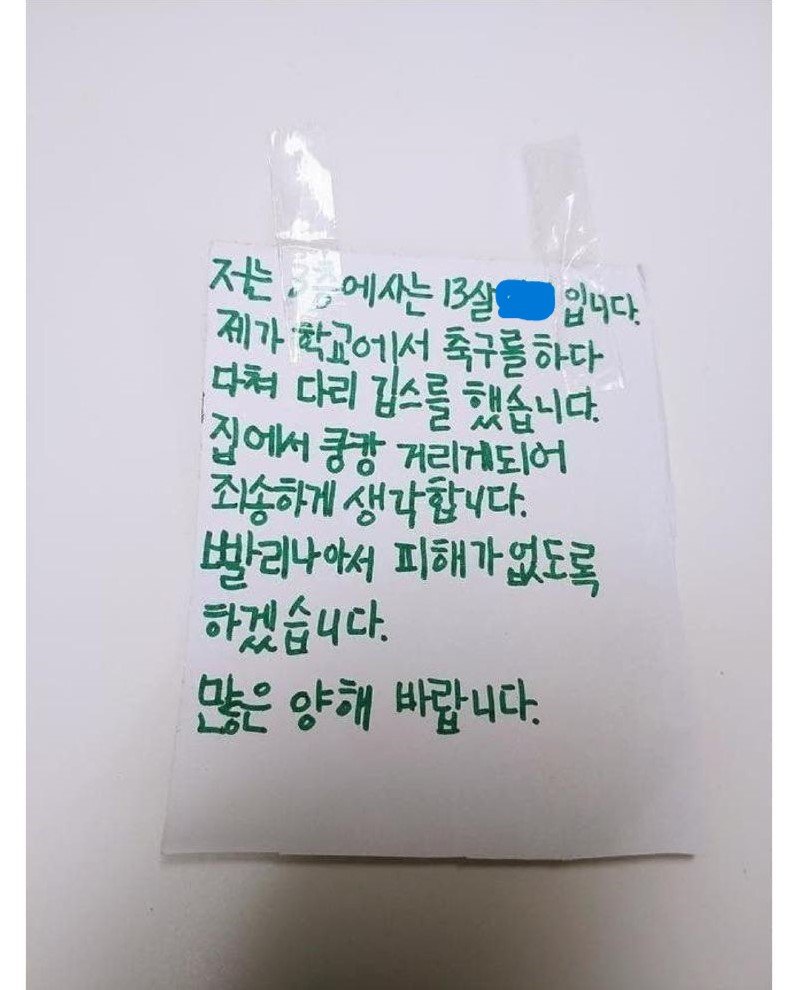 저는 3층에사는 13살 입니다.
제가 학교에서 축구를 하다
다쳐 다리 깁스를 했습니다.
집에서 쿵캉 거리게되어
죄송하게 생각합니다.
빨리나아서 피해가 없도록
하겠습니다.
많은 양해 바랍니다.